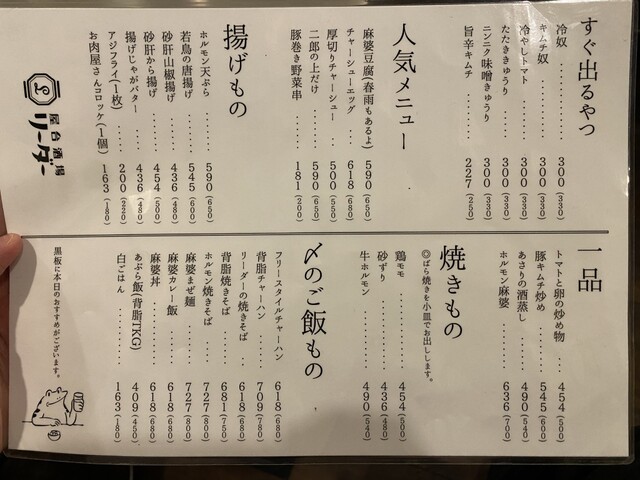 すぐ出るやつ
冷奴 300(330)
キムチ奴 300(330)
冷やしトマト 300(330)
たたききゅうり 300(330)
ニンニク味噌きゅうり 300(330)
旨辛キムチ 227(250)
人気メニュー
麻婆豆腐(春雨もあるよ) 590(650)
チャーシューエッグ 618(680)
厚切りチャーシュー 500(550)
二郎の上だけ 590(650)
豚巻き野菜串 181(200)
揚げもの
ホルモン天ぷら 590(650)
若鳥の唐揚げ 545(600)
砂肝山椒揚げ 436(480)
砂肝から揚げ 454(500)
揚げじゃがバター 436(480)
アジフライ(1枚) 200(220)
お肉屋さんコロッケ(1個) 163(180)
屋台酒場
リーダー
一品
トマトと卵の炒め物 454(500)
豚キムチ炒め 545(600)
あさりの酒蒸し 490(540)
ホルモン麻婆 636(700)
焼きもの
◎ばら焼きを小皿でお出しします。
鶏モモ 454(500)
砂ずり 436(480)
牛ホルモン 490(540)
〆のご飯もの
フリースタイルチャーハン 618(680)
背脂チャーハン 709(780)
リーダーの焼きそば 618(680)
背脂焼きそば 681(750)
ホルモン焼きそば 727(800)
麻婆まぜ麺 727(800)
麻婆カレー飯 618(680)
麻婆丼 618(680)
あぶら飯(背脂TKG) 409(450)
白ごはん 163(180)
黒板に本日のおすすめがございます。